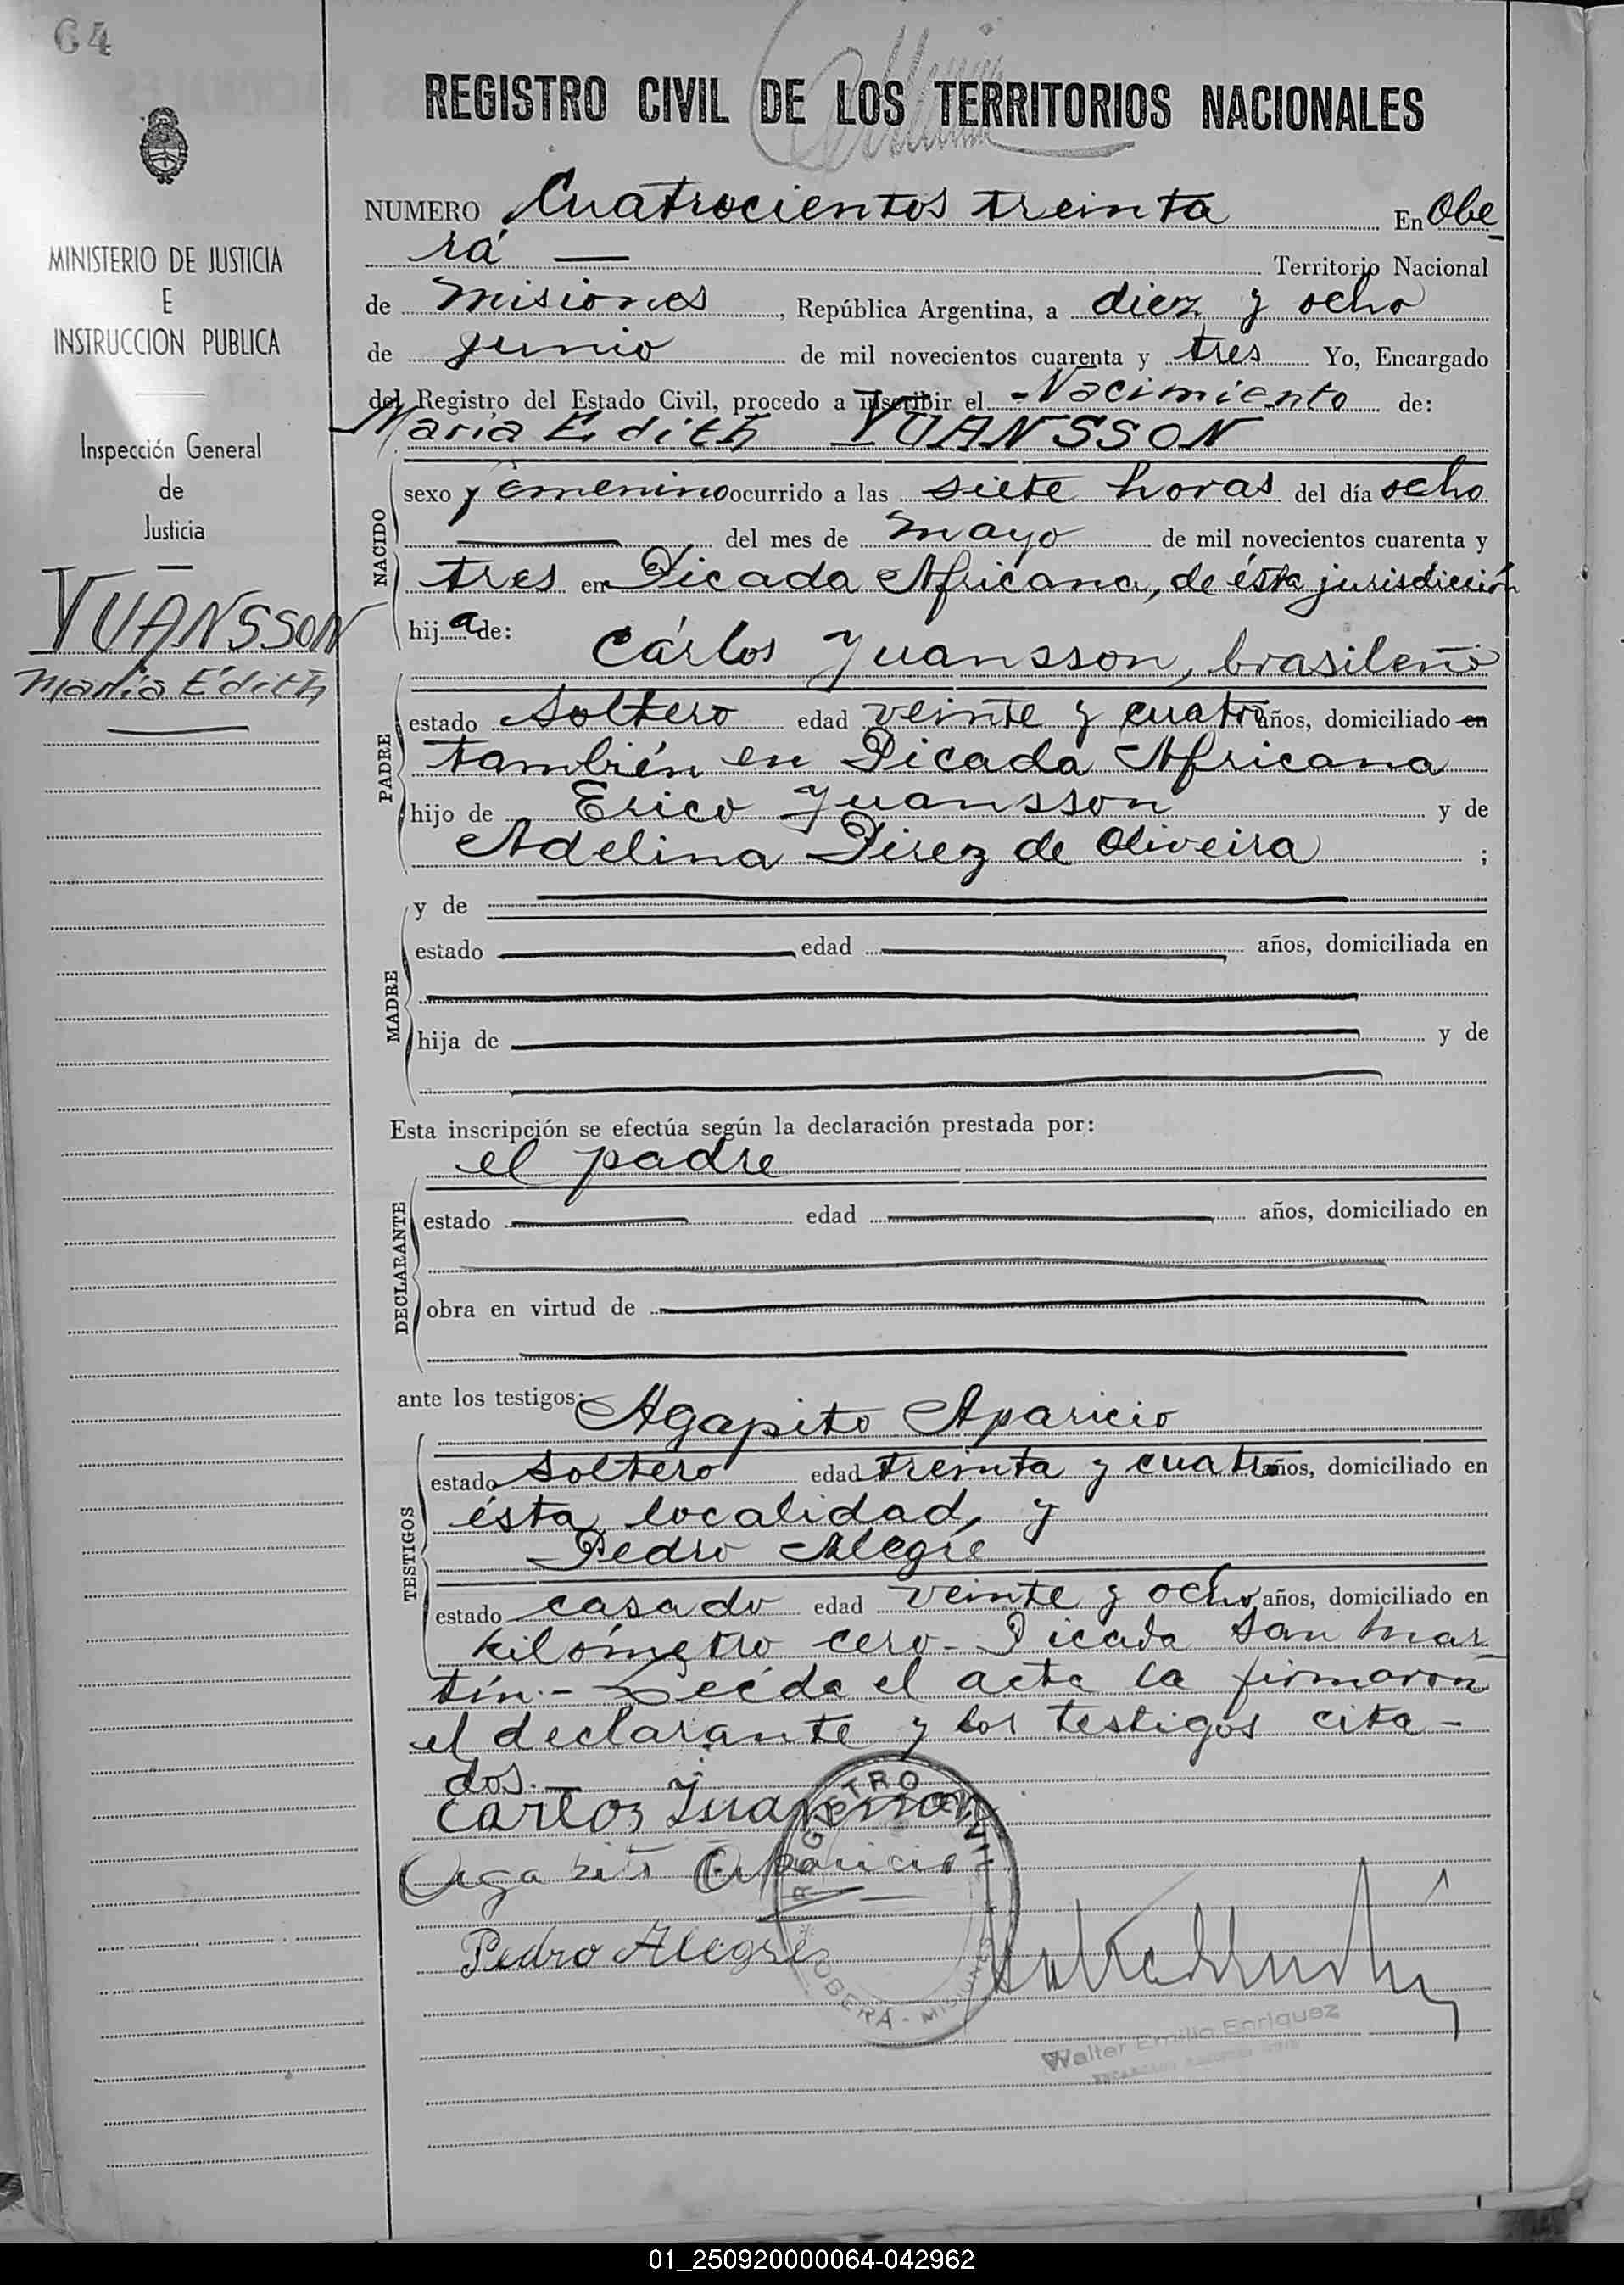 64
REGISTRO CIVIL DE LOS TERRITORIOS NACIONALES
MINISTERIO DE JUSTICIA
E
INSTRUCCION PUBLICA
Inspección General
de
Justicia
YUANSSON
María Edith
NUMERO Cuatrocientos treinta En Obe
rá — Territorio Nacional
de Misiones, República Argentina, a diez y ocho
de junio de mil novecientos cuarenta y tres Yo, Encargado
del Registro del Estado Civil, procedo a inscribir el - Nacimiento de:
María Edith YUANSSON
NACIDO
sexo femenino ocurrido a las siete horas del día ocho
del mes de mayo de mil novecientos cuarenta y
tres en Picada Africana, de ésta jurisdicción
hija de:
Cárlos Yuansson, brasileño
PADRE
estado soltero edad veinte y cuatro años, domiciliado en
también en Picada Africana
hijo de Erico Yuansson y de
Adelina Pirez de Oliveira ;
MADRE
y de
estado edad años, domiciliada en
hija de y de
Esta inscripción se efectúa según la declaración prestada por:
el padre
DECLARANTE
estado edad años, domiciliado en
obra en virtud de
ante los testigos: Agapito Aparicio
TESTIGOS
estado soltero edad treinta y cuatro años, domiciliado en
ésta localidad, y
Pedro Alegre
estado casado edad veinte y ocho años, domiciliado en
kilómetro cero - Picada San Mar
tín.- Leída el acta la firmaron
el declarante y los testigos cita-
dos.—
Carlos Yuansson
Agapito Aparicio
Pedro Alegre
REGISTRO CIVIL
OBERÁ - MISIONES
Walter Emilio Enriquez
01_250920000064-042962